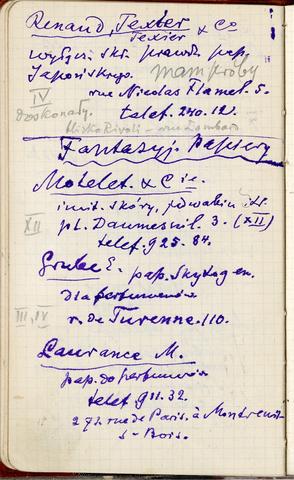 Renaud, Texier & Co
Texier
wyłącz. skł. prawdz. pap.
Japońskiego.
mam próby
IV
rue Nicolas Flamel. 5.
doskonały.
telef. 270. 12.
blisko Rivoli – rue Lombard
Fantazyj. Papiery
Motelet. & Cie.
imit. skóry, jedwabiu itd.
XII
pl. Daumesnil. 3. (XII)
telef. 925. 84.
Grube E. pap.
dla perfumerów
III, IV
r. de Turenne. 110.
Laurance M.
pap. do perfumerów
telef. 911. 32.
272. rue de Paris. à Montreuil
s - Bois.